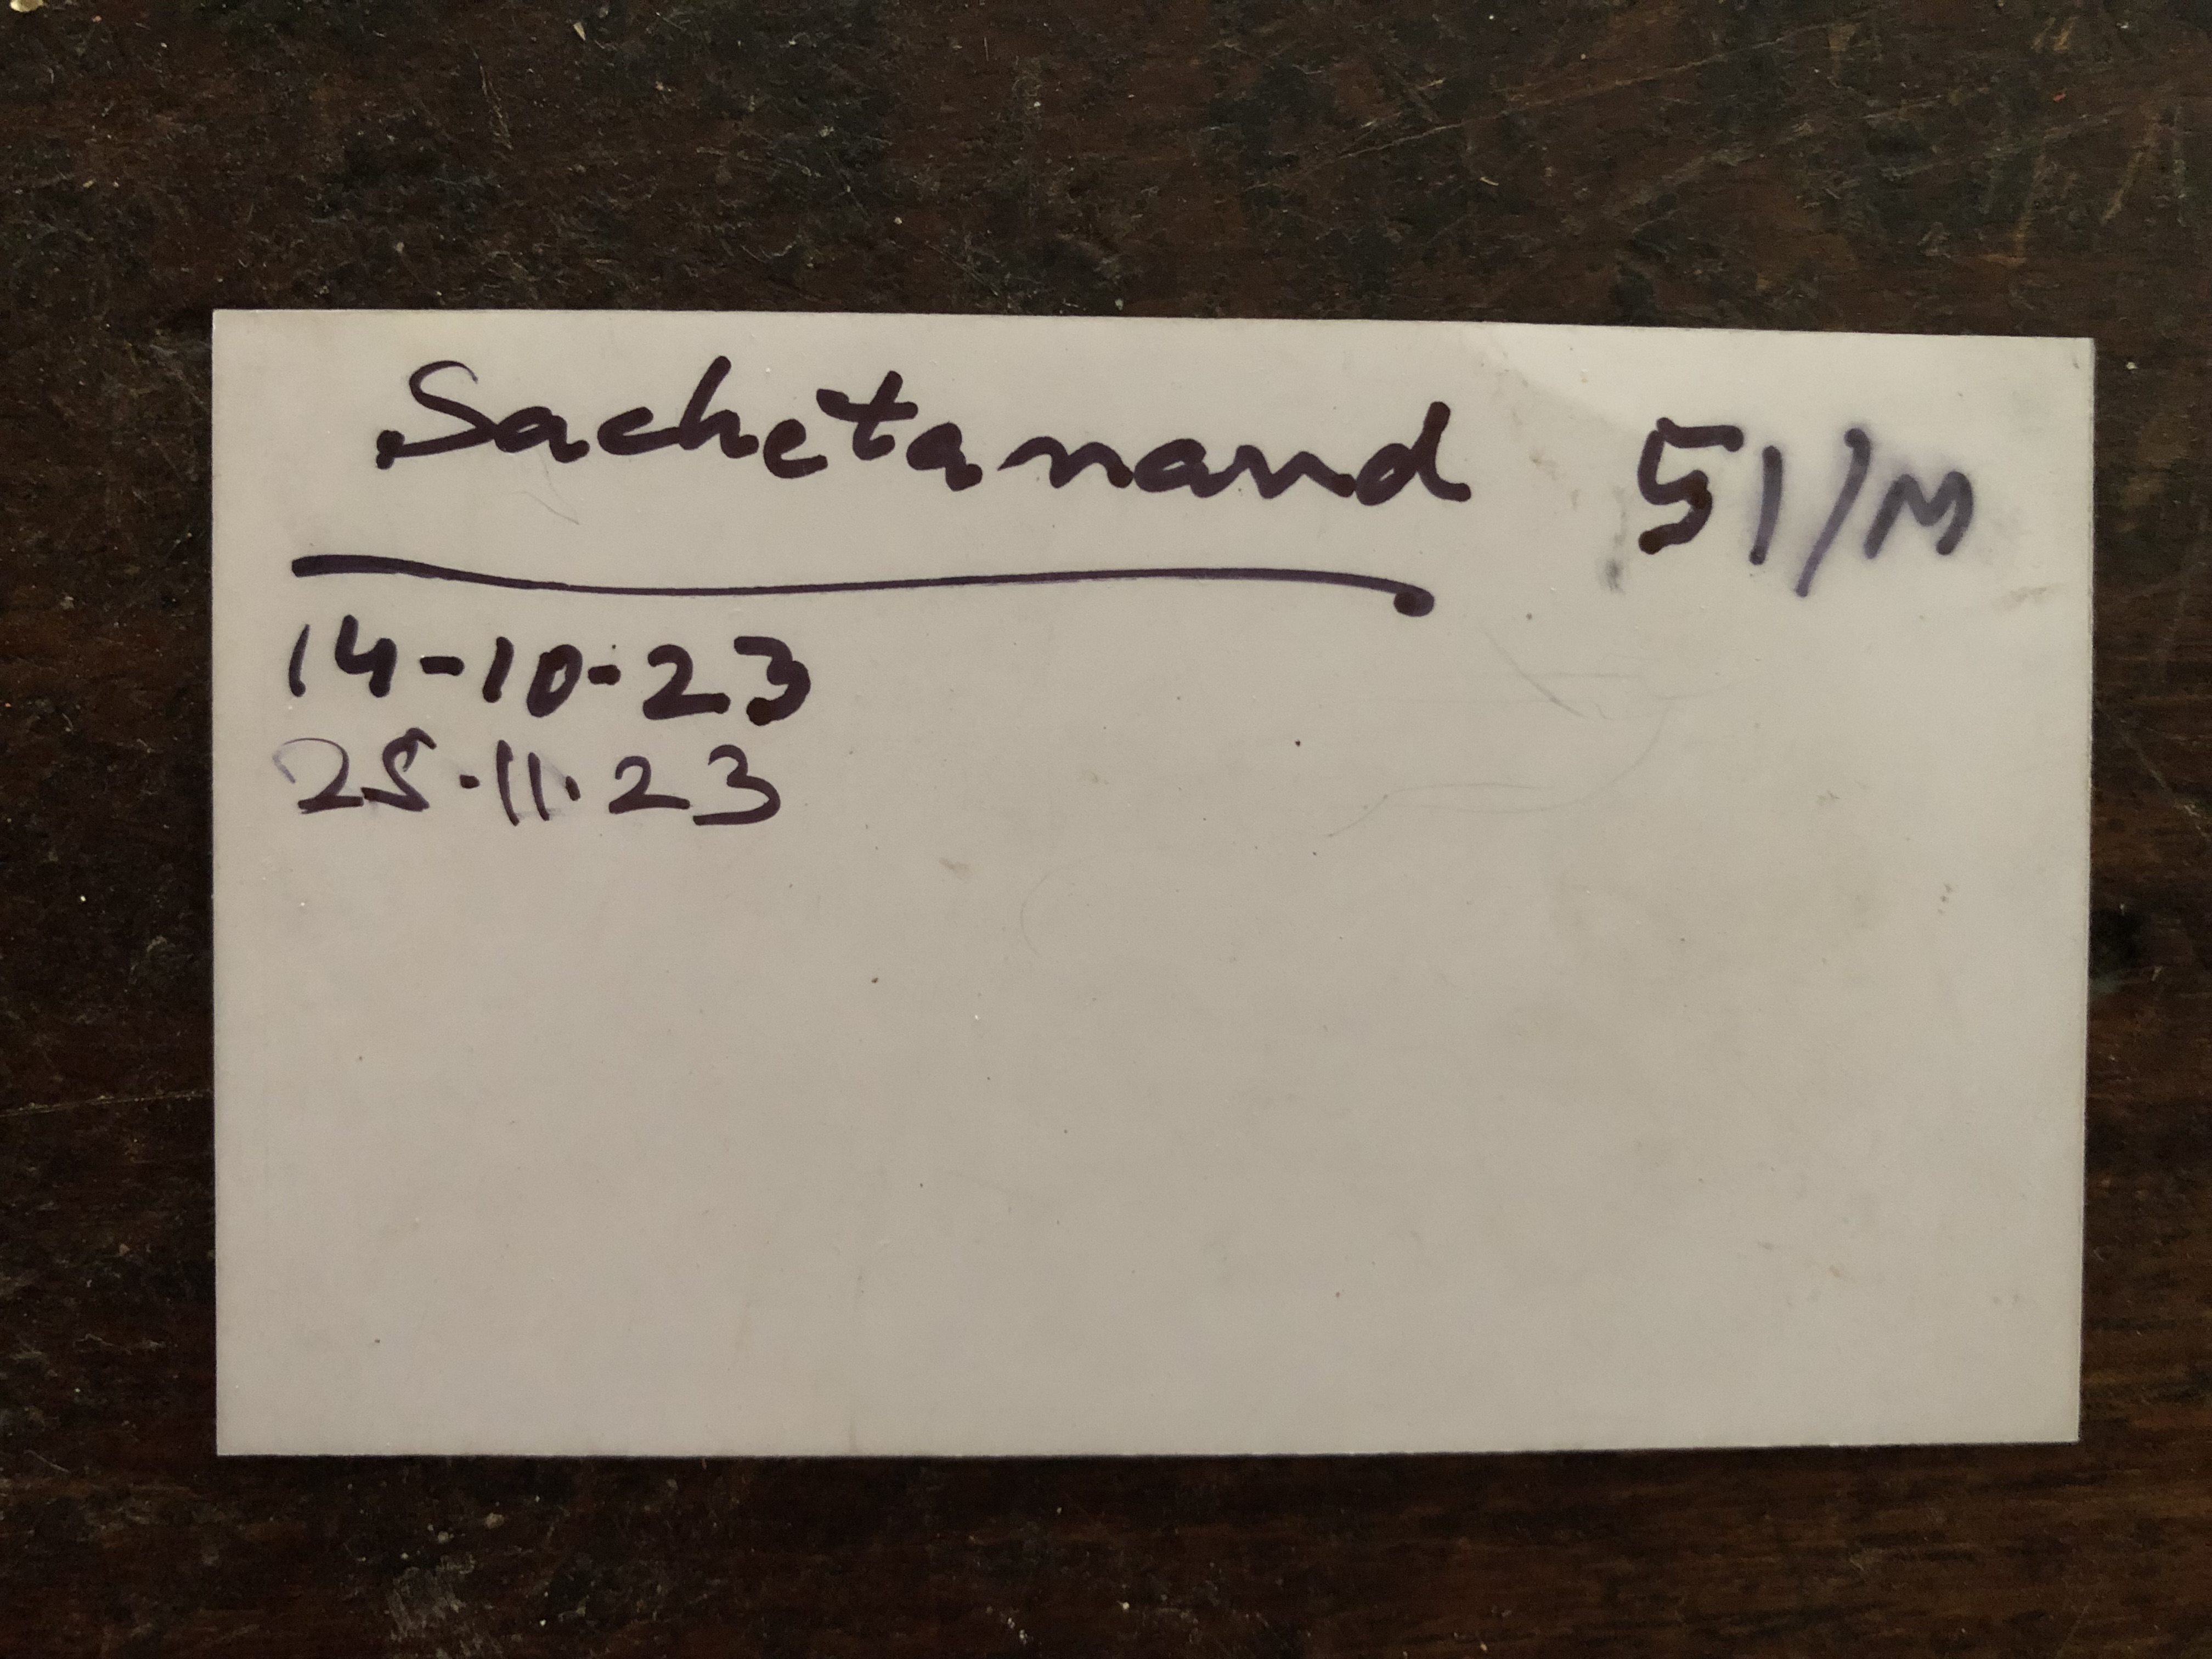 Sachetanand 51/M
14-10-23
25.11.23